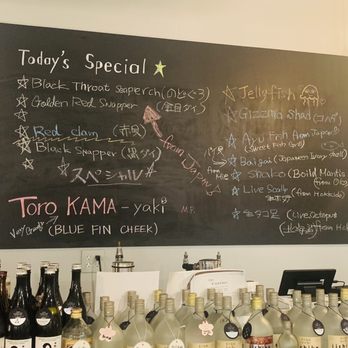 Today's Special
Black Throat Seaperch (のどぐろ)
Golden Red Snapper
from Japan
Red clam (赤貝)
Black Snapper (黒ダイ)
スペシャル
Toro KAMA -yaki M.P.
Very Good! (BLUE FIN CHEEK)
Jelly fish
Gizzard Shad (コハダ)
Ayu Fish from Japan
(Sweet Fish Grill)
Baigai (Japanese Ivory shell)
Shako (Boild Mantis
Live
生タコ (Live Octopus
from Hokkaido